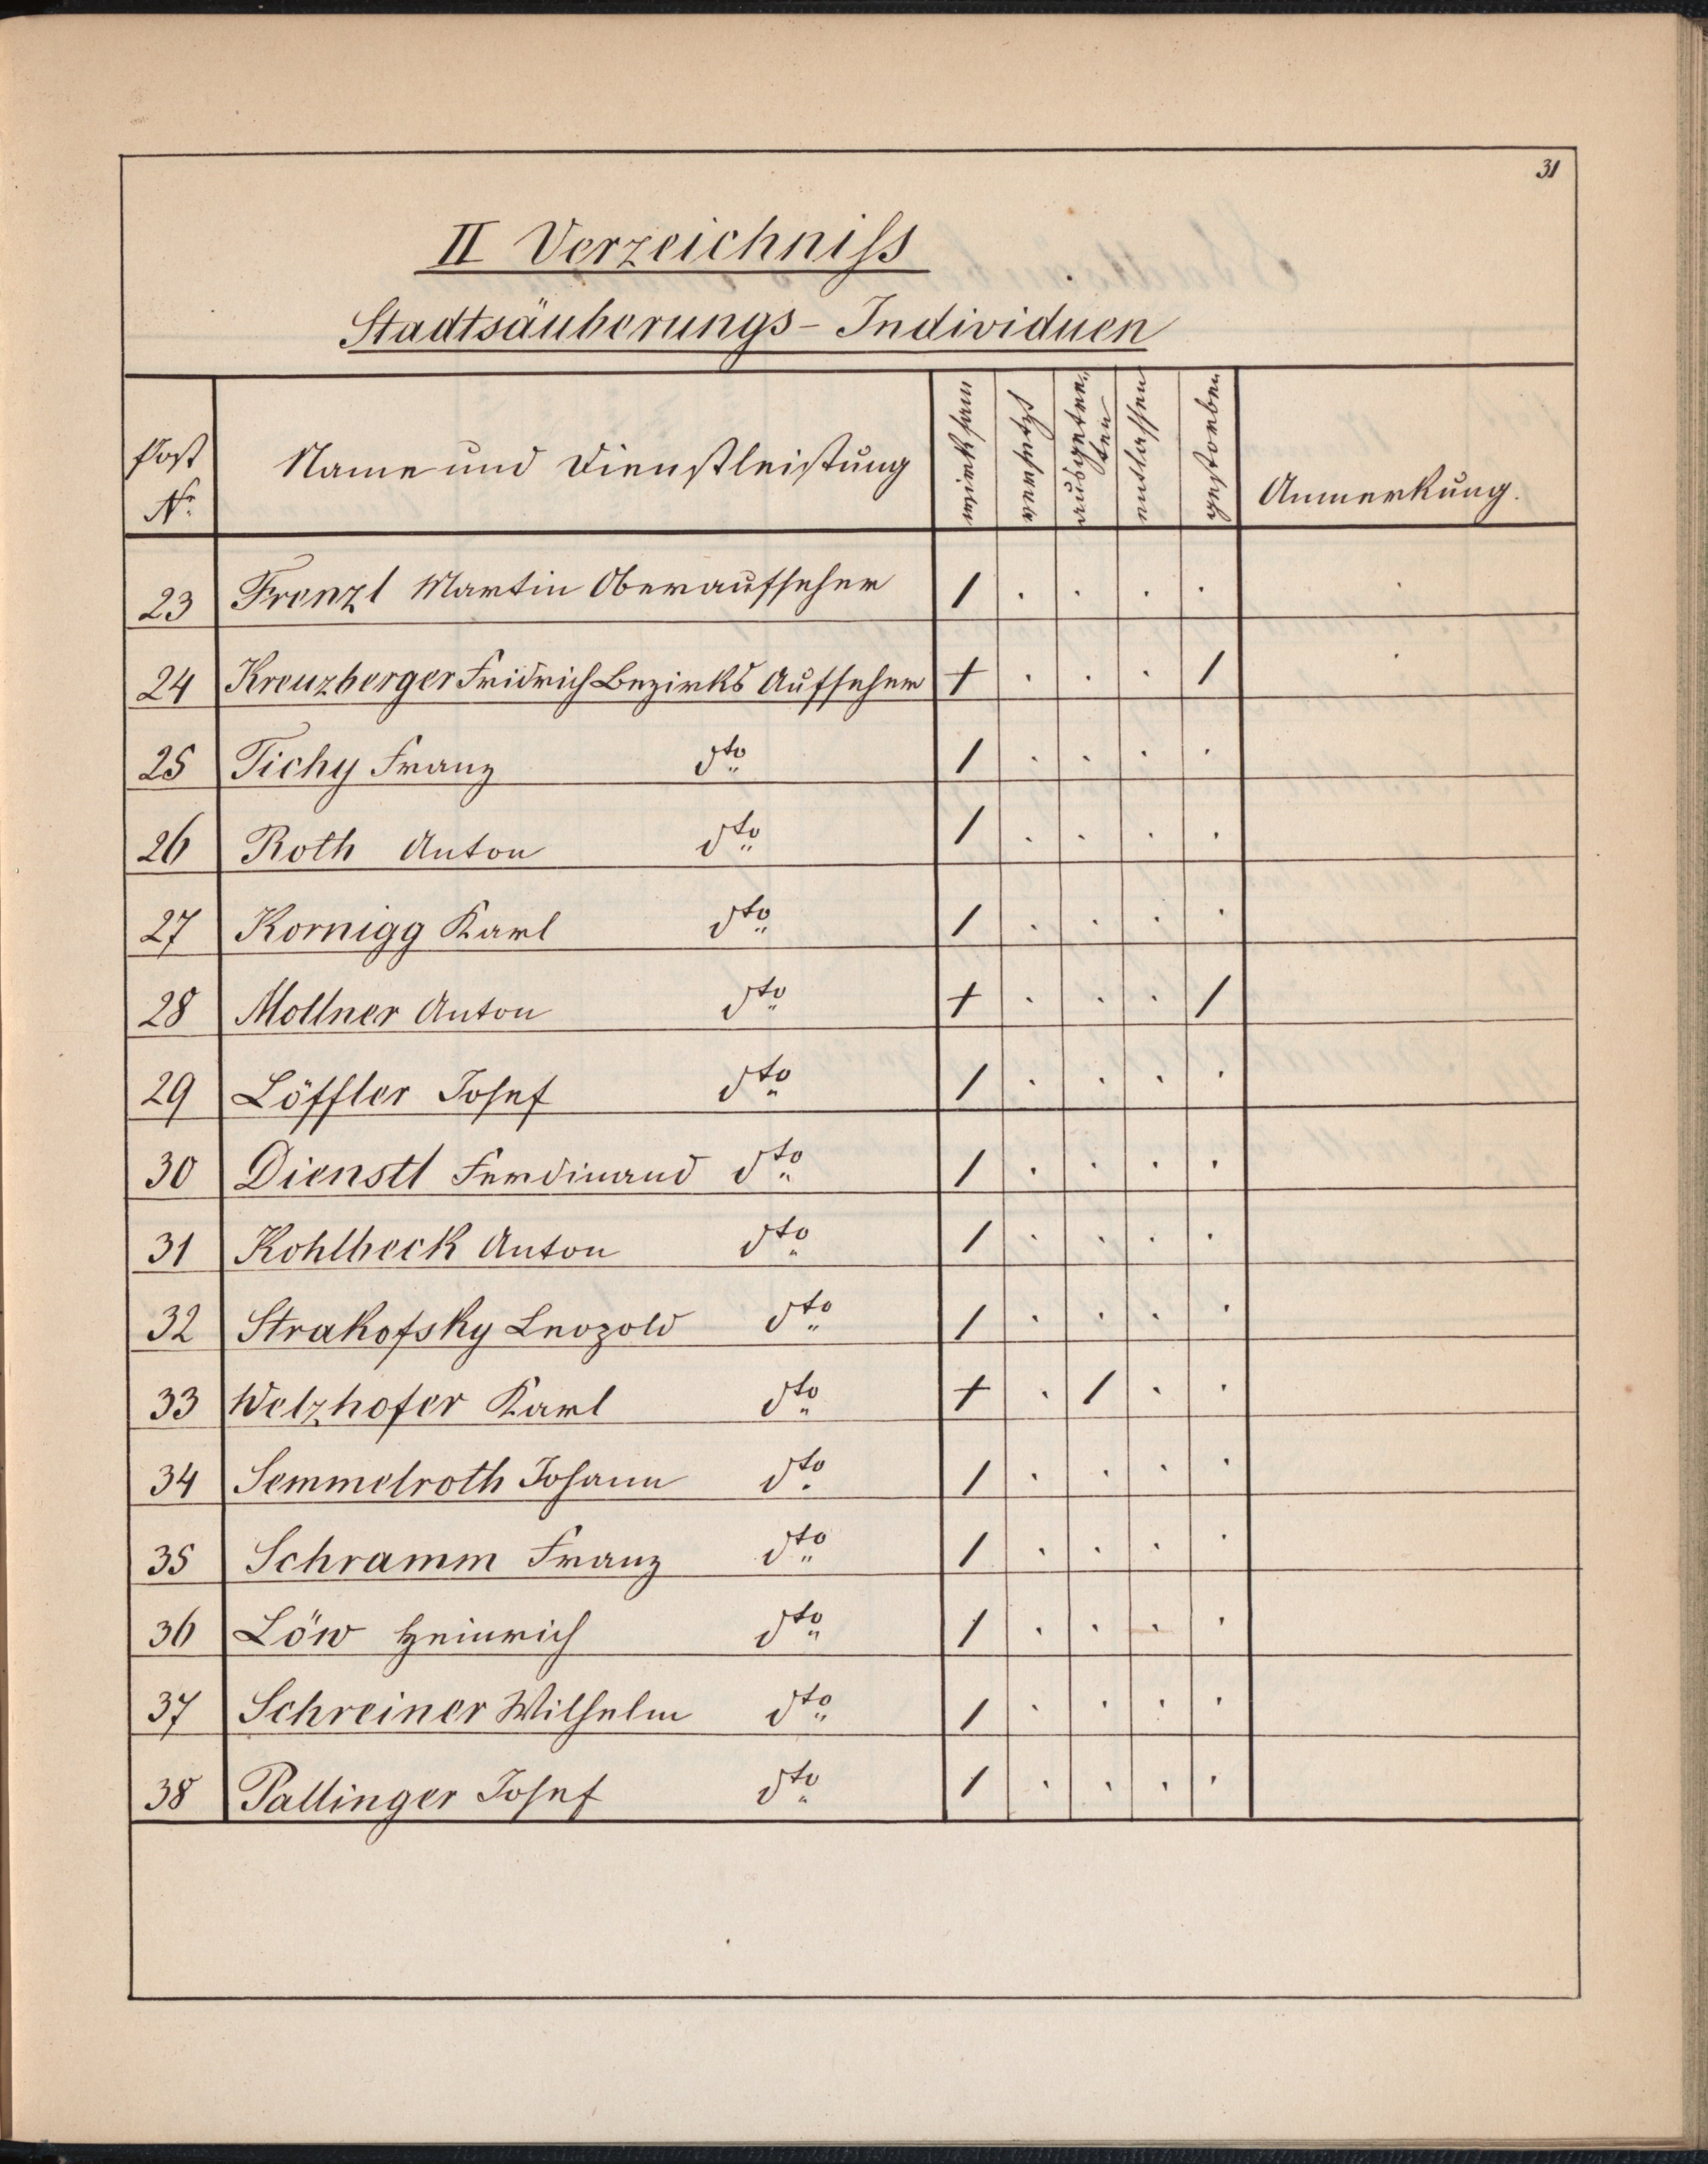 31
II Verzeichniss
Stadtsäuberungs-Individuen
Post Nr. Name und Dienstleistung wirksam versetzt ausgetre„ten entlassen gestorben Anmerkung.
23 Frenzl Martin Oberaufseher / . . . . .
24 Kreuzberger Fridrich Bezirks Aufseher + . . . / .
25 Tichy Franz dto / . . . .
26 Roth Anton dto / . . . .
27 Kornigg Karl dto / . . . .
28 Mollner Anton dto + . . . /
29 Löffler Josef dto / . . . .
30 Dienstl Ferdinand dto / . . . .
31 Kohlbeck Anton dto / . . . .
32 Strakofsky Leopold dto / . . . .
33 Welzhofer Karl dto + . / . .
34 Semmelroth Johann dto / . . . .
35 Schramm Franz dto / . . . .
36 Löw Heinrich dto / . . . .
37 Schreiner Wilhelm dto / . . . .
38 Pallinger Josef dto / . . . .